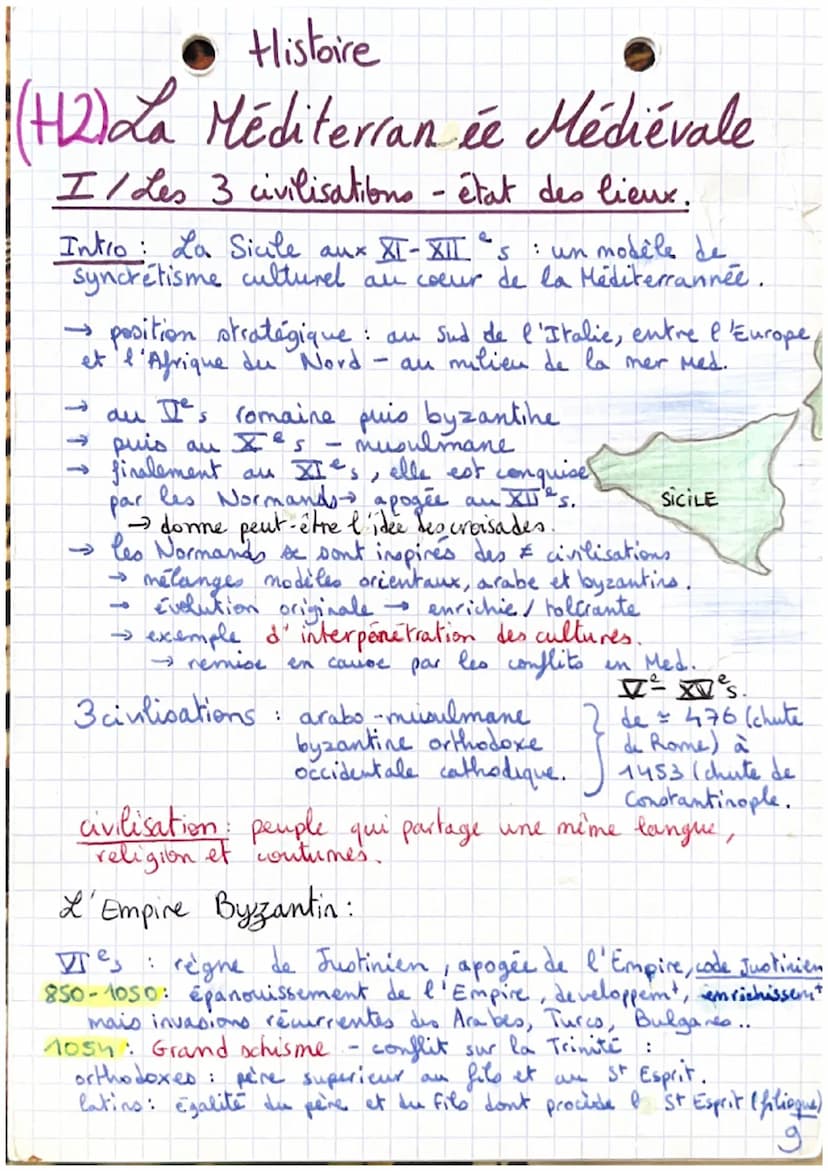 Histoire
(H2) La Méditerranée Médiévale
I / Les 3 civilisations - état des lieux.
Intro : La Sicile aux XI-XII e s : un modèle de
syncrétisme culturel au coeur de la Méditerrannée.
→ position stratégique : au sud de l'Italie, entre l'Europe
et l'Afrique du Nord - au milieu de la mer Med.
→ au V e s romaine puis byzantine
→ puis au X e s - musulmane
→ finalement au XI e s, elle est conquise
par les Normands → apogée au XII e s.
SICILE
→ donne peut-être l'idée des croisades.
→ les Normands se sont inspirés des ≠ civilisations
→ mélanges modèles orientaux, arabe et byzantins.
→ évolution originale → enrichie / tolérante
→ exemple d'interpénétration des cultures.
→ remise en cause par les conflits en Med.
V e - XV e s.
3 civilisations : arabo-musulmane } de ≃ 476 (chute
byzantine orthodoxe de Rome) à
occidentale catholique. 1453 (chute de
Constantinople.
civilisation : peuple qui partage une même langue,
religion et coutumes.
L'Empire Byzantin :
VI e s : règne de Justinien, apogée de l'Empire, code Justinien
850-1050 : épanouissement de l'Empire, developpem t, enrichissem t
mais invasions récurrentes des Arabes, Turcs, Bulgares..
1054 : Grand schisme - conflit sur la Trinité :
orthodoxes : père superieur au fils et au St Esprit.
latins : égalité du père et du Fils dont procède l St Esprit (filioque)
9